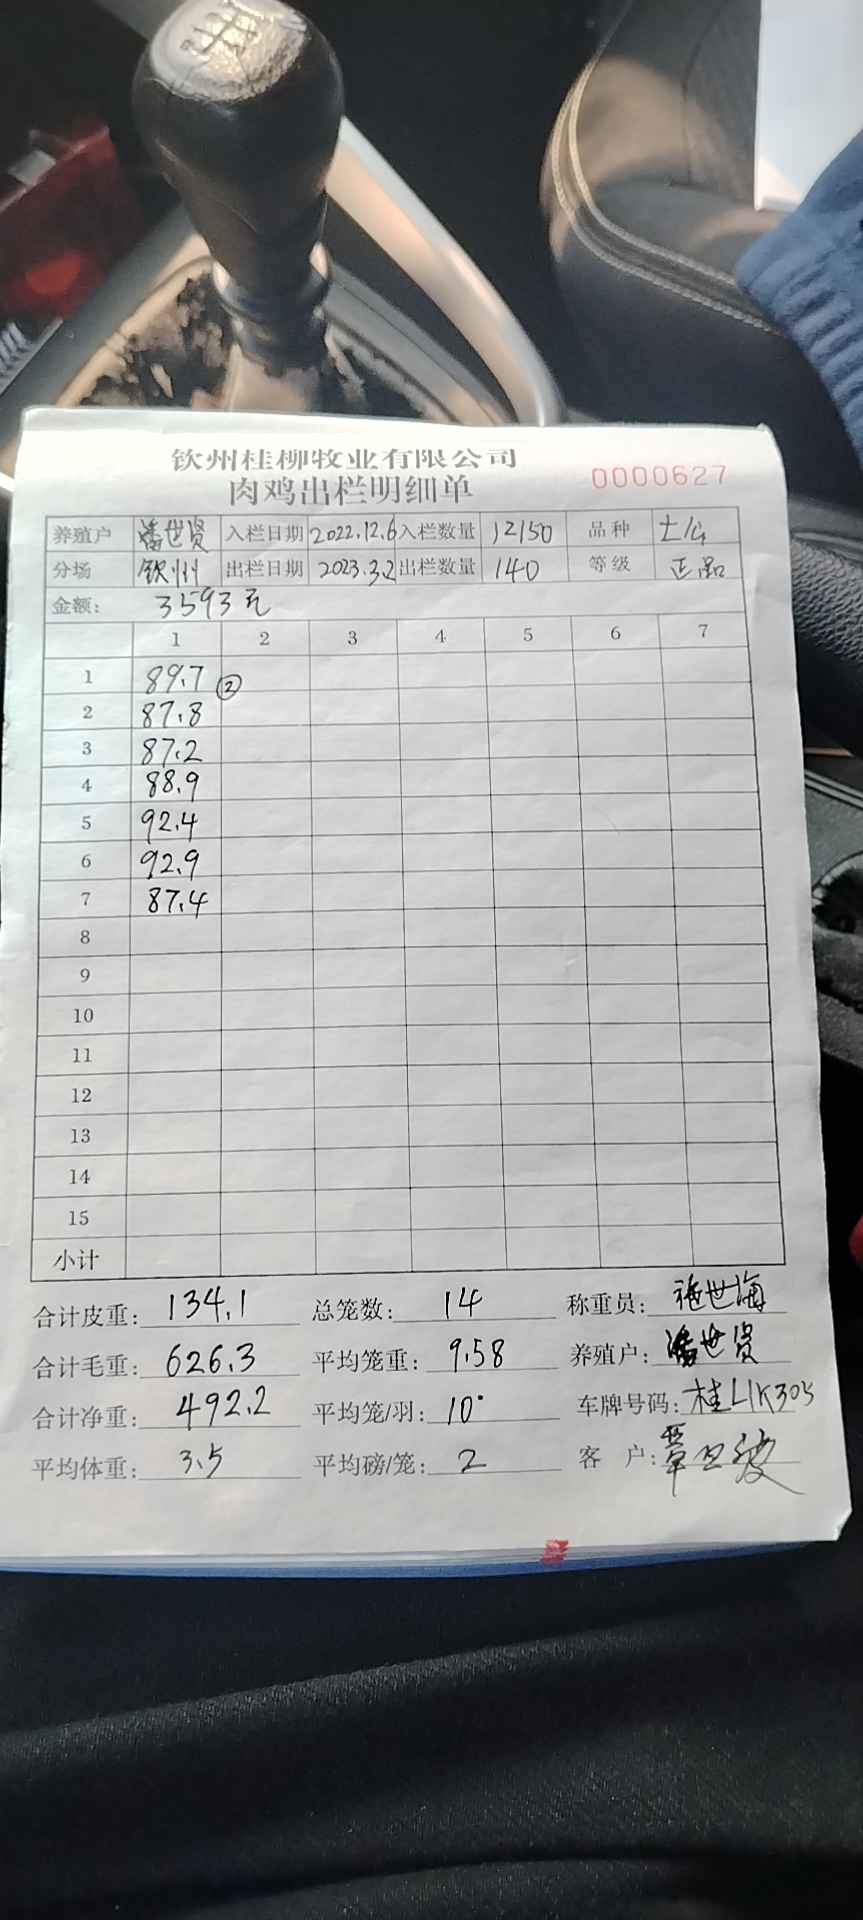 钦州桂柳牧业有限公司
肉鸡出栏明细单 0000627
养殖户 潘世贤 入栏日期 2022.12.6 入栏数量 12150 品种 土/公
分场 钦州 出栏日期 2023.3.2 出栏数量 140 等级 正品
金额: 3593元
1 2 3 4 5 6 7
1 89.7 ②
2 87.8
3 87.2
4 88.9
5 92.4
6 92.9
7 87.4
8
9
10
11
12
13
14
15
小计
合计皮重: 134.1 总笼数: 14 称重员: 世海
合计毛重: 626.3 平均笼重: 9.58 养殖户: 潘世贤
合计净重: 492.2 平均笼/羽: 10 车牌号码: 桂L1K305
平均体重: 3.5 平均磅/笼: 2 客 户: 覃